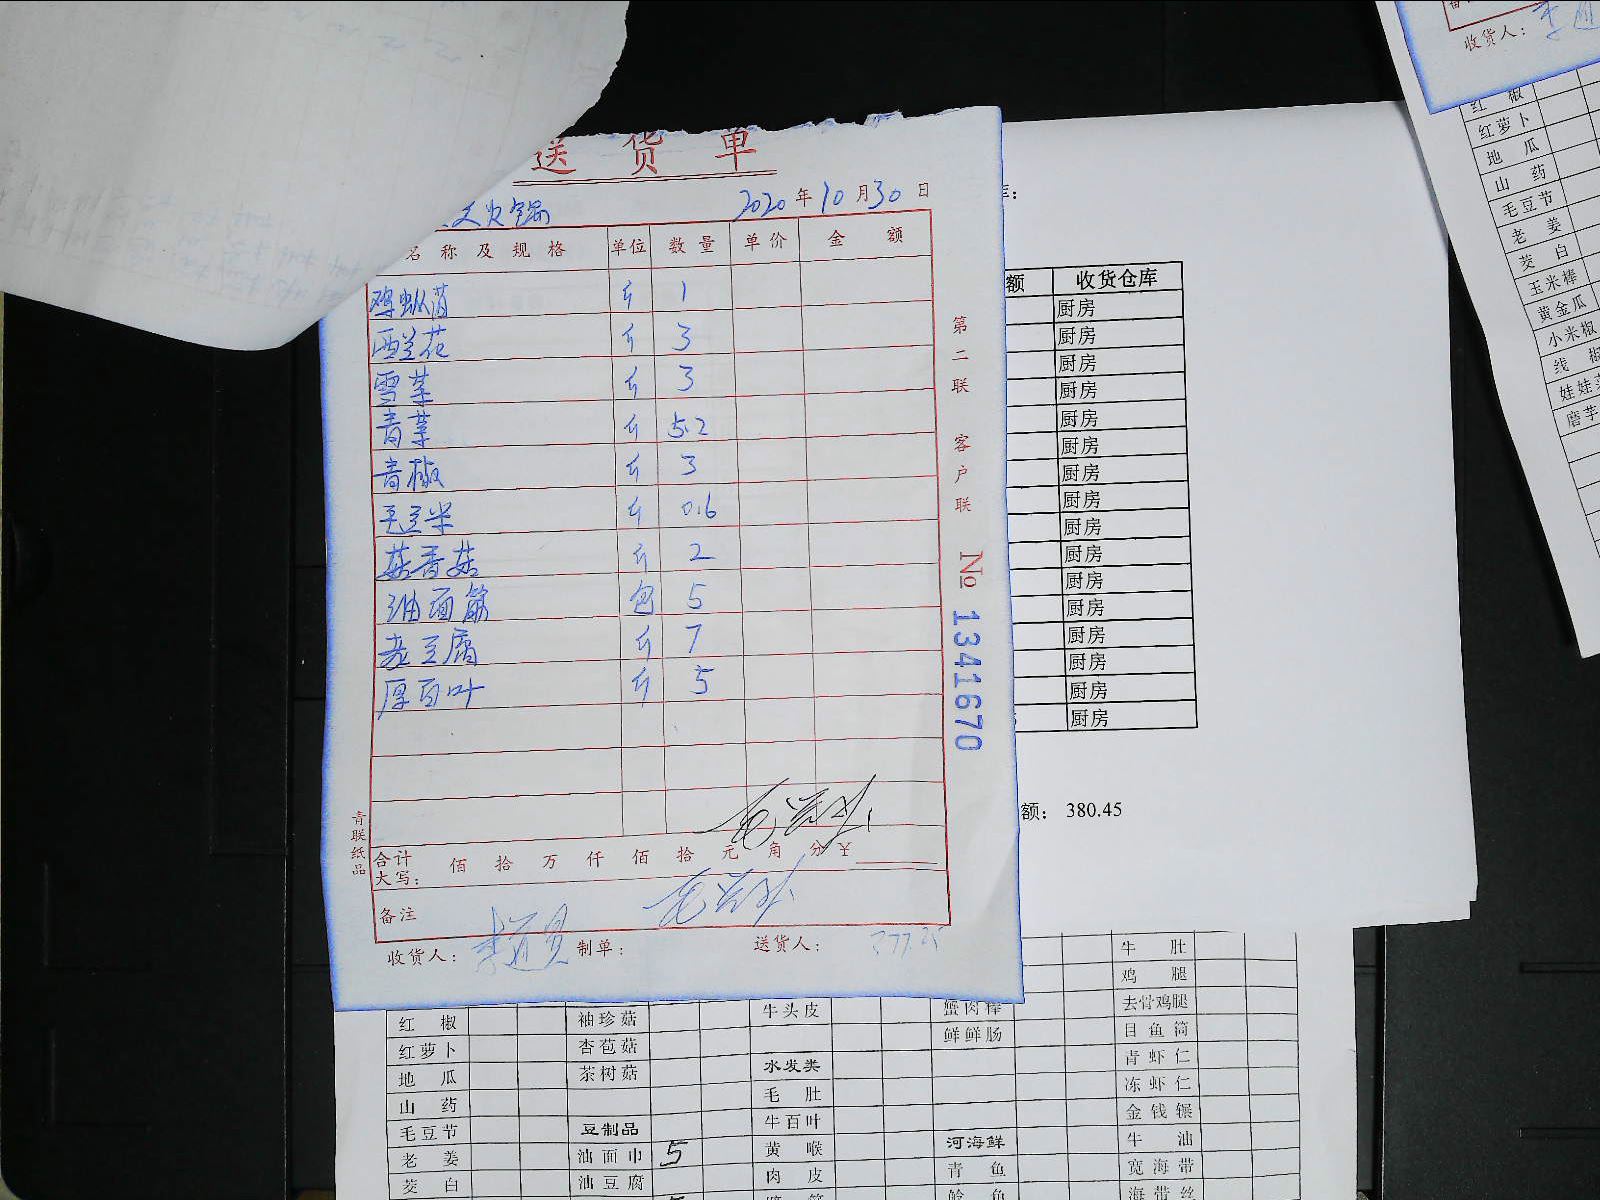 送 货 单
火锅 2020 年 10 月 30 日
名 称 及 规 格 单位 数 量 单 价 金 额
斤 1
西兰花 斤 3
雪菜 斤 3
青菜 斤 5.2
青椒 斤 3
毛豆米 斤 0.6
菇香菇 斤 2
油面筋 包 5
老豆腐 斤 7
厚百叶 斤 5
合计
大写: 佰 拾 万 仟 佰 拾 元 角 分 ¥
备注
收货人: 制单: 送货人:
第二联 客户联 № 1341670
青联纸品
额 收货仓库
厨房
厨房
厨房
厨房
厨房
厨房
厨房
厨房
厨房
厨房
厨房
厨房
厨房
厨房
厨房
厨房
额: 380.45
收货人:
红 椒
红萝卜
地 瓜
山 药
毛豆节
老 姜
茭 白
玉米棒
黄金瓜
小米椒
线 椒
娃娃菜
磨芋
牛 肚
鸡 腿
牛头皮 蟹肉棒 去骨鸡腿
红 椒 袖珍菇 鲜鲜肠 目鱼筒
红萝卜 杏苞菇 青虾仁
地 瓜 茶树菇 水发类 冻虾仁
山 药 毛 肚 金钱辗
毛豆节 豆制品 牛百叶 河海鲜 牛 油
老 姜 油面巾 5 黄 喉 青 鱼 宽海带
茭 白 油豆腐 肉 皮 鲶 鱼 海带丝